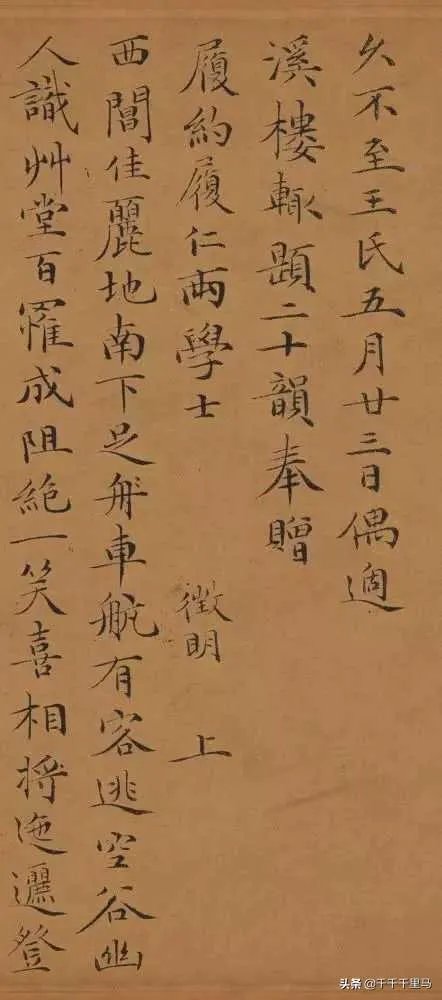 久不至王氏五月廿三日偶過
溪樓輒題二十韻奉贈
履約履仁兩學士 徵明 上
西閶佳麗地南下足舟車航有客逃空谷幽
人識艸堂百罹成阻絶一笑喜相將迤邐登
头条 @千千千里马